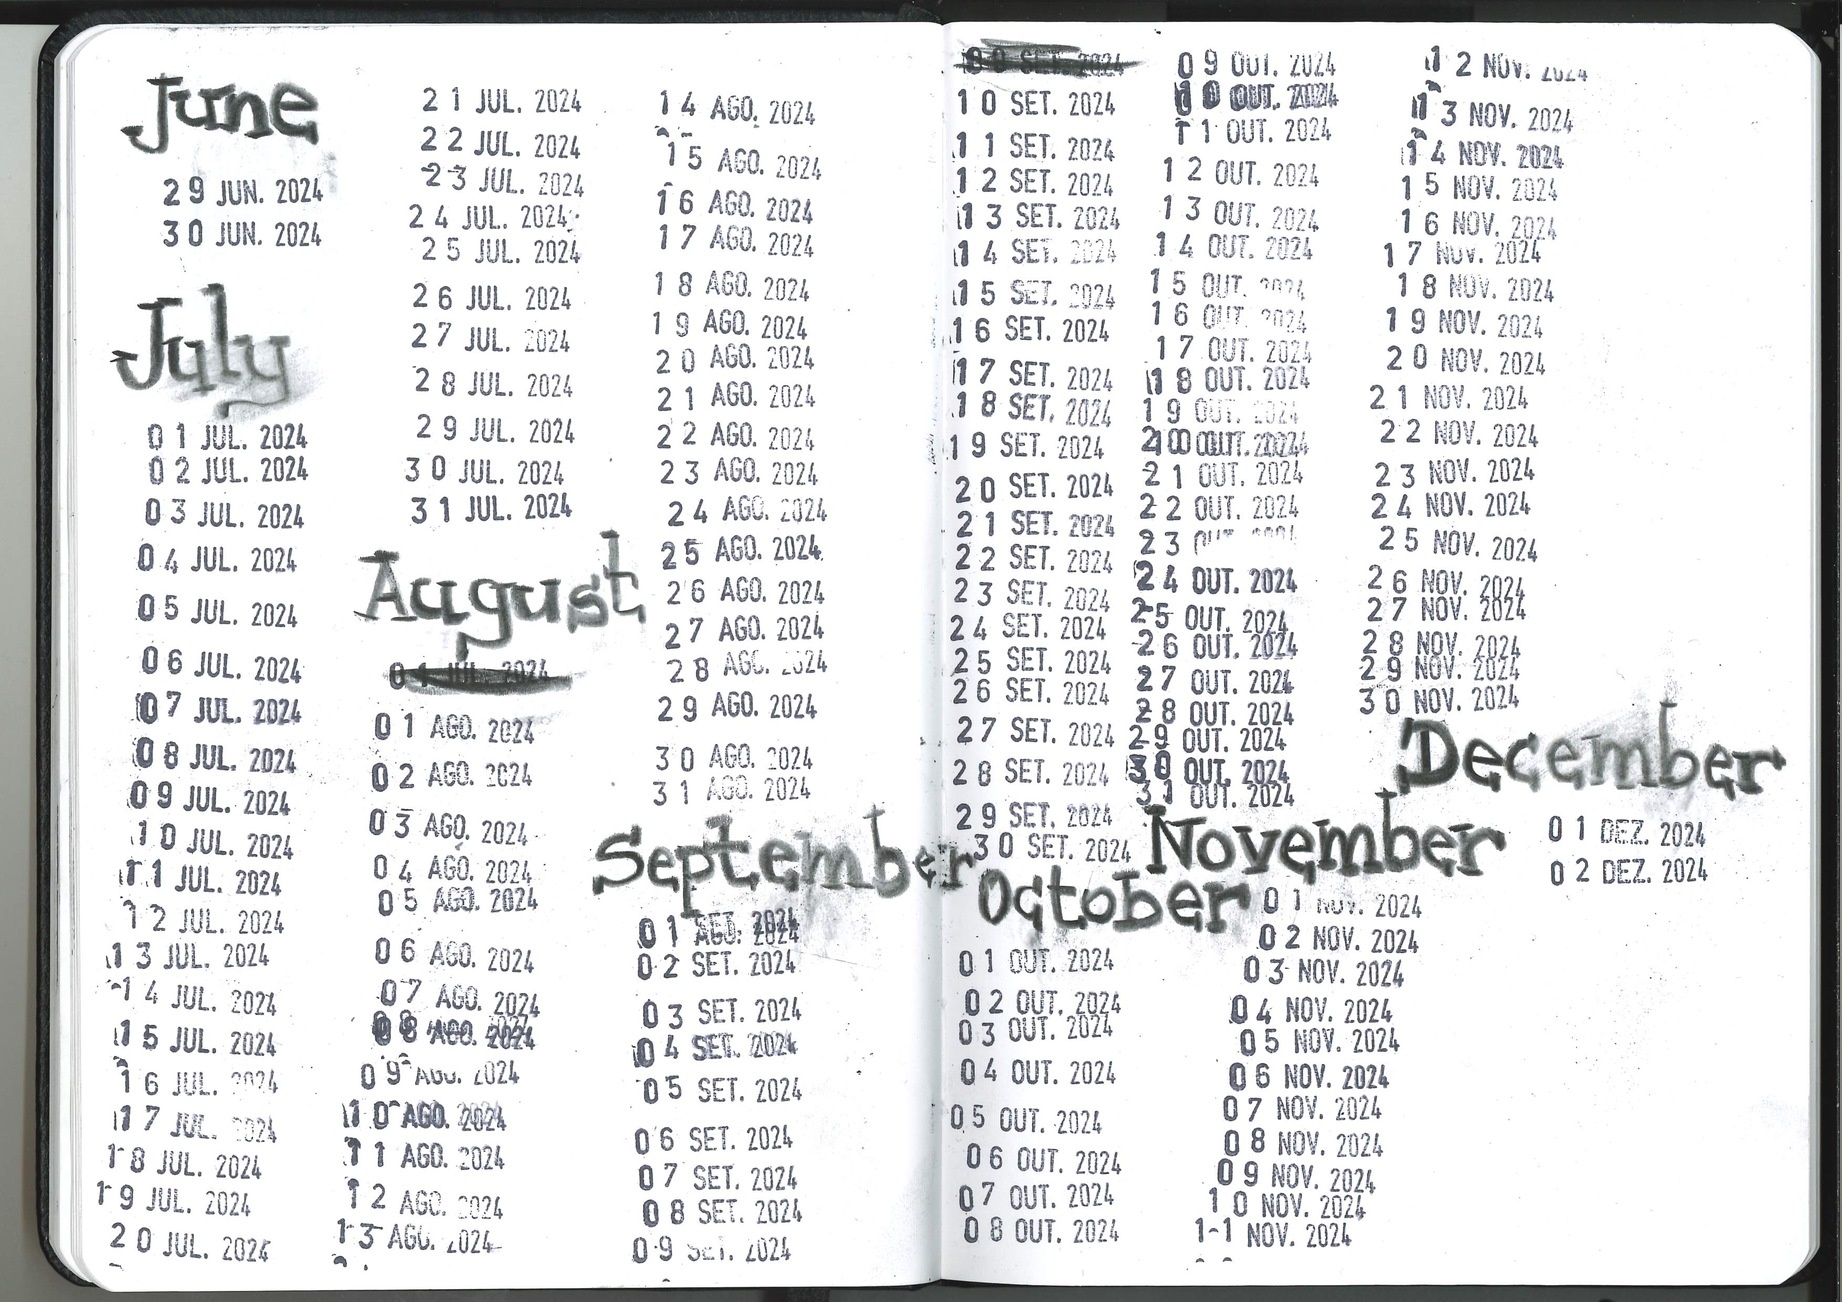 June
29 JUN. 2024
30 JUN. 2024
July
01 JUL. 2024
02 JUL. 2024
03 JUL. 2024
04 JUL. 2024
05 JUL. 2024
06 JUL. 2024
07 JUL. 2024
08 JUL. 2024
09 JUL. 2024
10 JUL. 2024
11 JUL. 2024
12 JUL. 2024
13 JUL. 2024
14 JUL. 2024
15 JUL. 2024
16 JUL. 2024
17 JUL. 2024
18 JUL. 2024
19 JUL. 2024
20 JUL. 2024
21 JUL. 2024
22 JUL. 2024
23 JUL. 2024
24 JUL. 2024
25 JUL. 2024
26 JUL. 2024
27 JUL. 2024
28 JUL. 2024
29 JUL. 2024
30 JUL. 2024
31 JUL. 2024
August
01 JUL. 2024
01 AGO. 2024
02 AGO. 2024
03 AGO. 2024
04 AGO. 2024
05 AGO. 2024
06 AGO. 2024
07 AGO. 2024
08 AGO. 2024
09 AGO. 2024
10 AGO. 2024
11 AGO. 2024
12 AGO. 2024
13 AGO. 2024
14 AGO. 2024
15 AGO. 2024
16 AGO. 2024
17 AGO. 2024
18 AGO. 2024
19 AGO. 2024
20 AGO. 2024
21 AGO. 2024
22 AGO. 2024
23 AGO. 2024
24 AGO. 2024
25 AGO. 2024
26 AGO. 2024
27 AGO. 2024
28 AGO. 2024
29 AGO. 2024
30 AGO. 2024
31 AGO. 2024
September
01 SET. 2024
02 SET. 2024
03 SET. 2024
04 SET. 2024
05 SET. 2024
06 SET. 2024
07 SET. 2024
08 SET. 2024
09 SET. 2024
SET. 2024
10 SET. 2024
11 SET. 2024
12 SET. 2024
13 SET. 2024
14 SET. 2024
15 SET. 2024
16 SET. 2024
17 SET. 2024
18 SET. 2024
19 SET. 2024
20 SET. 2024
21 SET. 2024
22 SET. 2024
23 SET. 2024
24 SET. 2024
25 SET. 2024
26 SET. 2024
27 SET. 2024
28 SET. 2024
29 SET. 2024
30 SET. 2024
October
01 OUT. 2024
02 OUT. 2024
03 OUT. 2024
04 OUT. 2024
05 OUT. 2024
06 OUT. 2024
07 OUT. 2024
08 OUT. 2024
09 OUT. 2024
10 OUT. 2024
11 OUT. 2024
12 OUT. 2024
13 OUT. 2024
14 OUT. 2024
15 OUT. 2024
16 OUT. 2024
17 OUT. 2024
18 OUT. 2024
19 OUT. 2024
20 OUT. 2024
21 OUT. 2024
22 OUT. 2024
23 OUT. 2024
24 OUT. 2024
25 OUT. 2024
26 OUT. 2024
27 OUT. 2024
28 OUT. 2024
29 OUT. 2024
30 OUT. 2024
31 OUT. 2024
November
01 NOV. 2024
02 NOV. 2024
03 NOV. 2024
04 NOV. 2024
05 NOV. 2024
06 NOV. 2024
07 NOV. 2024
08 NOV. 2024
09 NOV. 2024
10 NOV. 2024
11 NOV. 2024
12 NOV. 2024
13 NOV. 2024
14 NOV. 2024
15 NOV. 2024
16 NOV. 2024
17 NOV. 2024
18 NOV. 2024
19 NOV. 2024
20 NOV. 2024
21 NOV. 2024
22 NOV. 2024
23 NOV. 2024
24 NOV. 2024
25 NOV. 2024
26 NOV. 2024
27 NOV. 2024
28 NOV. 2024
29 NOV. 2024
30 NOV. 2024
December
01 DEZ. 2024
02 DEZ. 2024